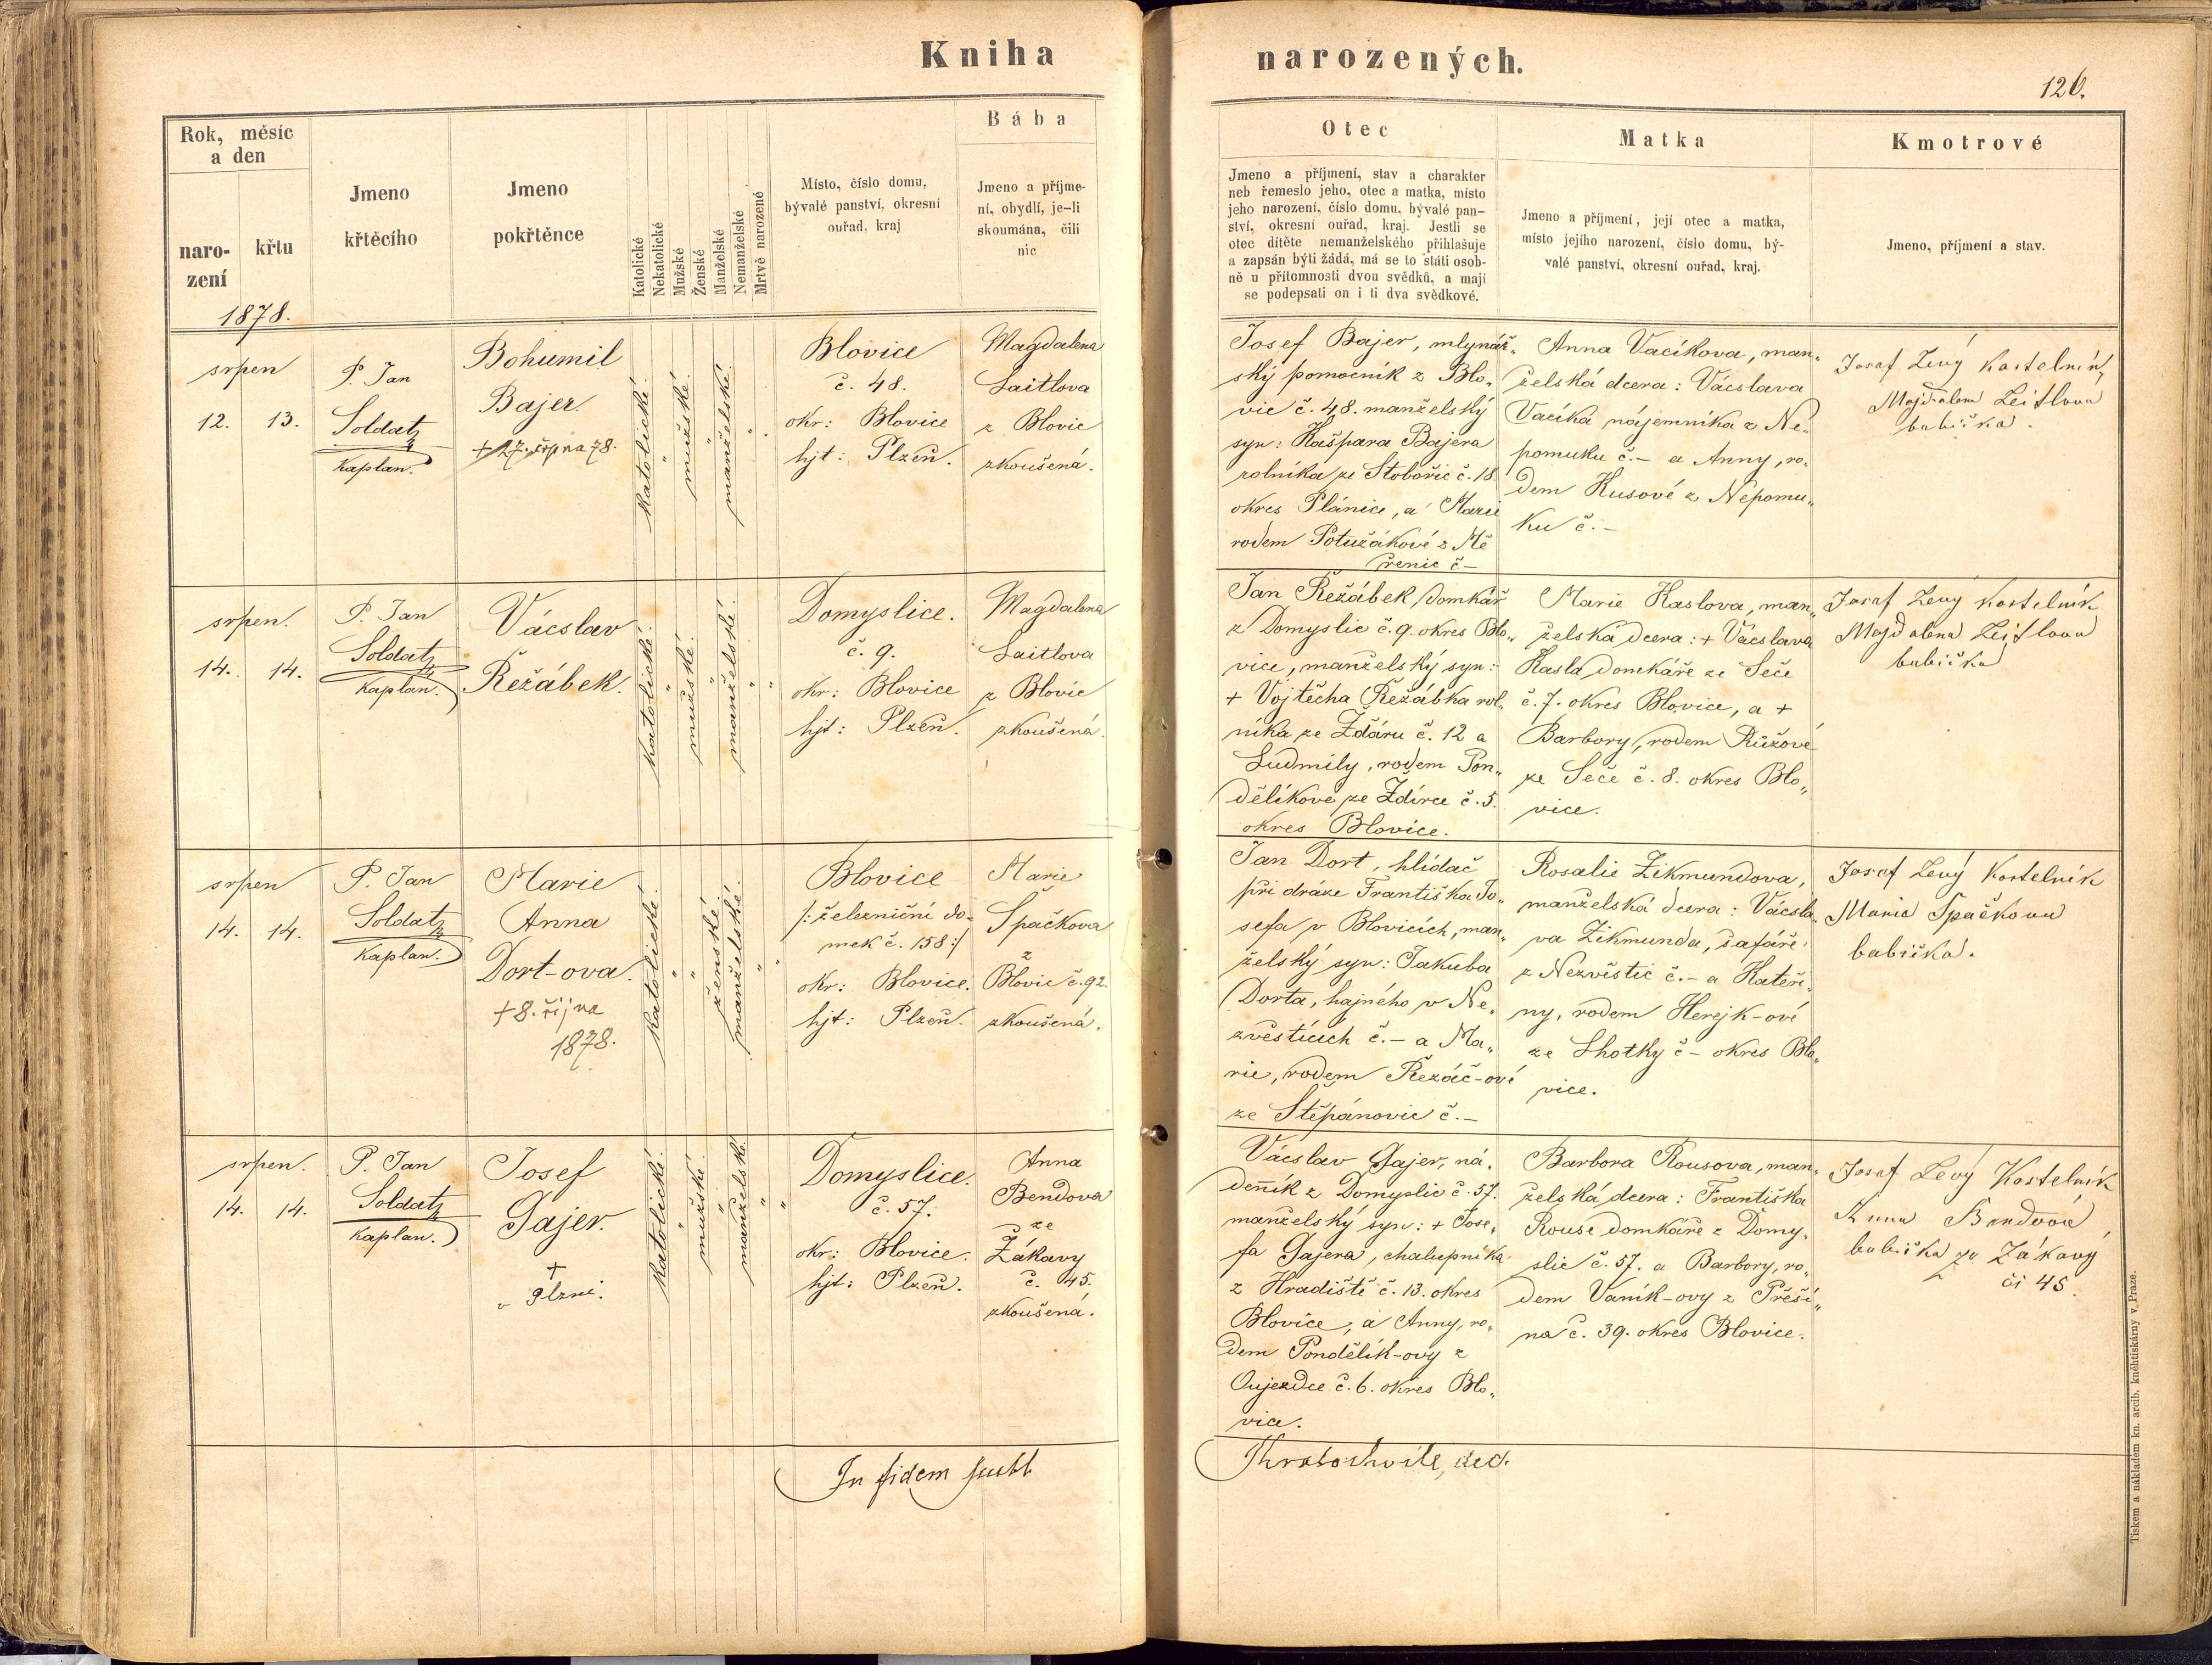 Kniha narozených.
126.
Rok, měsíc
a den
naro-
zení
křtu
Jmeno
křtěcího
Jmeno
pokřtěnce
Katolické
Nekatolické
Mužské
Ženské
Manželské
Nemanželské
Mrtvě narozené
Místo, číslo domu,
bývalé panství, okresní
ouřad, kraj
Bába
Jmeno a příjme-
ní, obydlí, je-li
skoumána, čili
nic
Otec
Jmeno a příjmení, stav a charakter
neb řemeslo jeho, otec a matka, místo
jeho narození, číslo domu, bývalé pan-
ství, okresní ouřad, kraj. Jestli se
otec dítěte nemanželského přihlašuje
a zapsán býti žádá, má se to státi osob-
ně u přítomnosti dvou svědků, a mají
se podepsati on i ti dva svědkové.
Matka
Jmeno a příjmení, její otec a matka,
místo jejího narození, číslo domu, bý-
valé panství, okresní ouřad, kraj.
Kmotrové
Jmeno, příjmení a stav.
1878.
srpen
12. 13.
P. Jan
Soldat
Kaplan.
Bohumil
Bajer
+ 27. srpna 78.
katolické
"
mužské
"
manželské
"
Blovice
č. 48.
okr: Blovice
hjt: Plzeň.
Magdalena
Laitlova
z Blovic
zkoušená.
Josef Bajer, mlynář-
ský pomocník z Blo-
vic č. 48. manželský
syn: Kašpara Bajera
rolníka ze Stobořic č. 18.
okres Plánice, a Marie
rodem Potužákové z Mě
řenic č –
Anna Vacíkova, man-
želská dcera: Vácslava
Vacíka nájemníka z Ne-
pomuku č. – a Anny, ro-
dem Kusové z Nepomu-
ku č. –
Josef Levý kostelník
Majdalena Leitlová
babička.
srpen.
14. 14.
P. Jan
Soldat
Kaplan.
Vácslav
Řežábek.
katolické
"
mužské
"
manželské
"
"
Domyslice.
č. 9.
okr: Blovice
hjt: Plzeň.
Magdalena
Laitlova
z Blovic
zkoušená.
Jan Řežábek, domkář
z Domyslic č. 9. okres Blo-
vice, manželský syn:
+ Vojtěcha Řežábka rol-
níka ze Žďáru č. 12 a
Ludmily, rodem Pon-
dělíkové ze Ždírce č. 5.
okres Blovice.
Marie Kaslova, man-
želská dcera: + Vácslava
Kasla domkáře ze Seče
č. 7. okres Blovice, a +
Barbory, rodem Růžové
ze Seče č. 8. okres Blo-
vice.
Josef Levý kostelník
Majdalena Leitlová
babička
srpen
14. 14.
P. Jan
Soldat
Kaplan.
Marie
Anna
Dort-ova.
+ 8. října
1878.
katolické
"
"
ženské
manželské
"
"
Blovice
/: železniční do-
mek č. 158 :/
okr: Blovice.
hjt: Plzeň.
Marie
Špačkova
z
Blovic č. 92.
zkoušená.
Jan Dort, hlídač
při dráze Františka Jo-
sefa v Blovicích, man-
želský syn: Jakuba
Dorta, hajného v Ne-
zvěstících č. – a Ma-
rie, rodem Řezáč-ové
ze Štěpánovic č. –
Rosalie Zikmundova,
manželská dcera: Vácsla-
va Zikmunda, šafáře
z Nezvěstic č. – a Kateři-
ny, rodem Herejk-ové
ze Lhotky č – okres Blo-
vice.
Josef Levý Kostelník
Marie Špačková
babička.
srpen.
14. 14.
P. Jan
Soldat
Kaplan.
Josef
Gajer.
+
v Plzni.
katolické
"
mužské
"
manželské
"
"
Domyslice.
č. 57.
okr: Blovice.
hjt: Plzeň.
Anna
Bendova
ze
Žákavy
č. 45.
zkoušená.
Vácslav Gajer, ná-
deník z Domyslic č. 57.
manželský syn: + Jose-
fa Gajera, chalupníka
z Hradiště č. 13. okres
Blovice, a Anny, ro-
dem Pondělík-ovy z
Oujezdce č. 6. okres Blo-
vice.
Barbora Rousova, man-
želská dcera: Františka
Rouse domkáře z Domy-
slic č. 57. a Barbory, ro-
dem Vaník-ovy z Přeší-
na č. 39. okres Blovice.
Josef Levý Kostelník
Anna Bendová
babička ze Žákavy
či 45.
In fidem
Kratochvile, dech.
Tiskem a nákladem kn. arcib. kněhtiskárny v Praze.